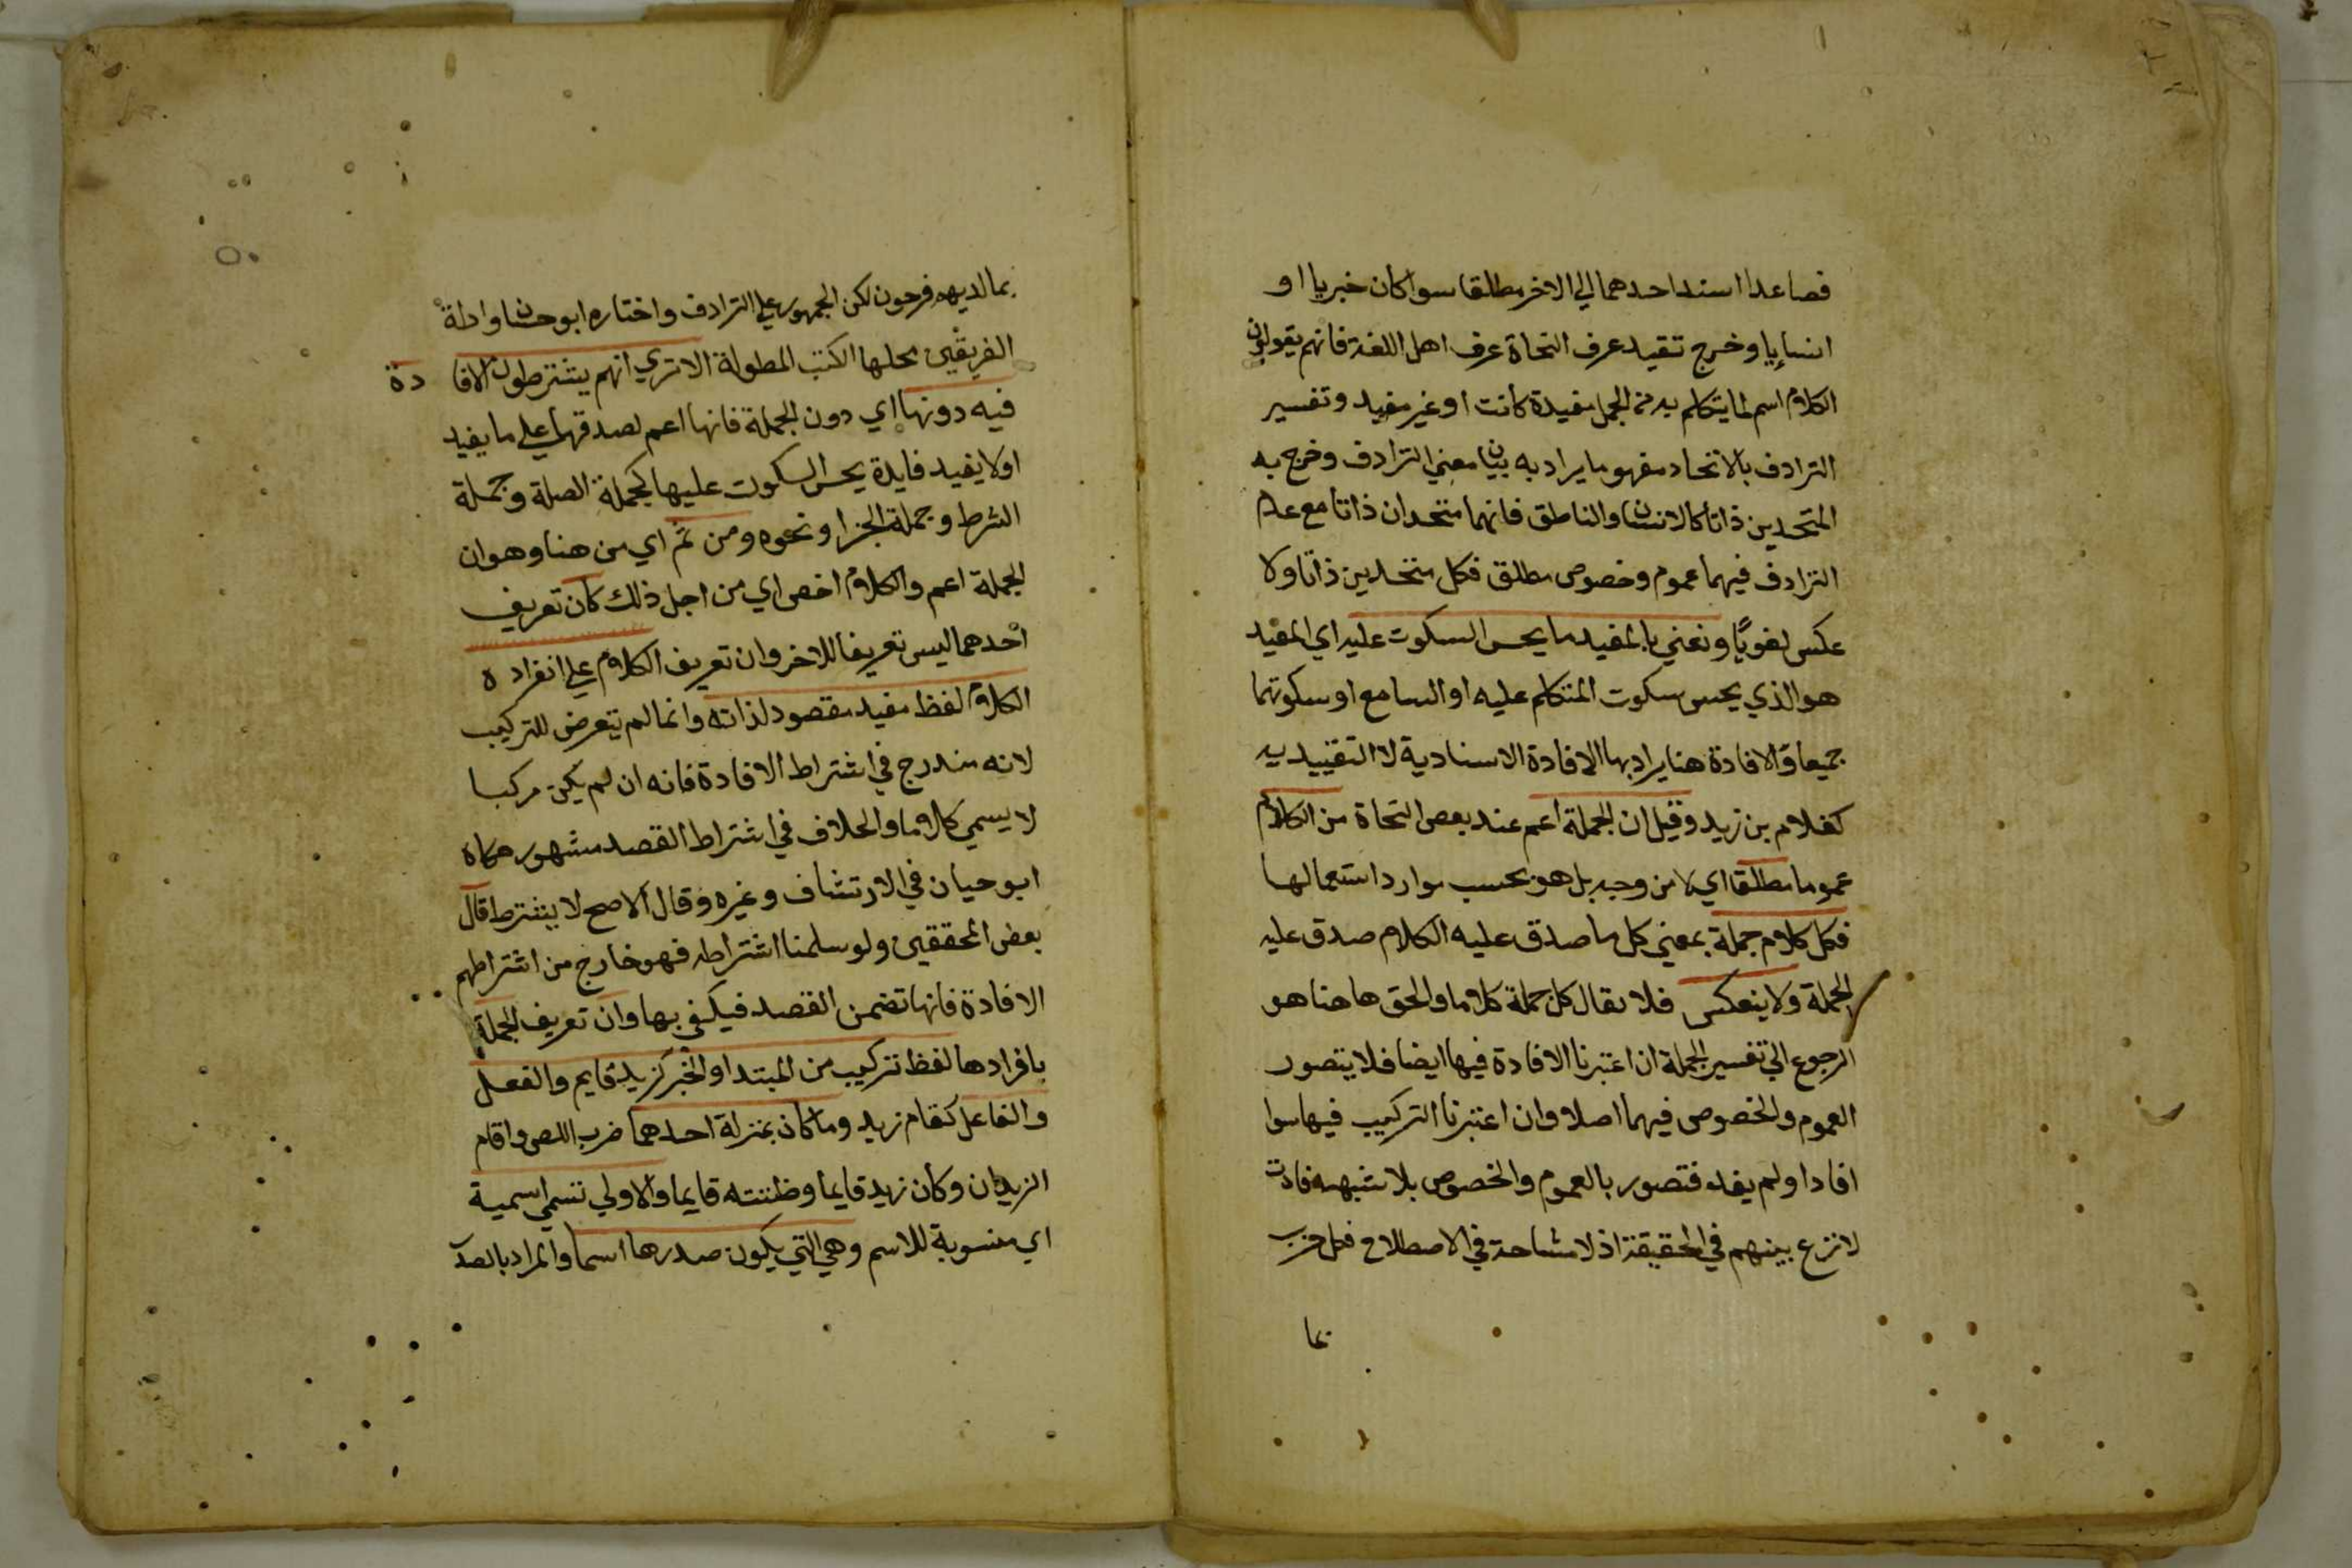 فصاعدا اسند احدهما الي الاخر مطلقا سوا كان خبريا او
انشاييا وخرج تقيد عرف النحاة عرف اهل اللغة فانهم يقولون
الكلام اسم لما يتكلم به من الجمل مفيدة كانت او غير مفيد وتفسير
الترادف بالاتحاد مفهوما يراد به بيان معني الترادف وخرج به
المتحدين ذاتا كالانسان والناطق فانهما متحدان ذاتا مع عدم
الترادف فيهما عموم وخصوص مطلق فكل متحدين ذاتا ولا
عكس لغويا ونعني بالمفيد ما يحسن السكوت عليه اي المفيد
هو الذي يحسن سكوت المتكلم عليه او السامع او سكوتهما
جميعا والافادة هنا يراد بها الافادة الاسنادية لا التقييديه
كغلام بن زيد وقيل ان الجملة اعم عند بعض النحاة من الكلام
عموما مطلقا اي لا من وجه بل هو بحسب موارد استعمالها
فكل كلام جملة بمعني كل ما صدق عليه الكلام صدق عليه
الجملة ولا ينعكس فلا يقال كل جملة كلاما والحق هاهنا هو
الرجوع الي تفسير الجملة ان اعتبرنا الافادة فيها ايضا فلا يتصور
العموم والخصوص فيهما اصلا وان اعتبرنا التركيب فيها سوا
افاد او لم يفد فتصور بالعموم والخصوص بلا شبهه
لا نزع بينهم في الحقيقة اذ لا مشاحة في الاصطلاح فكل حزب
بما
بما لديهم فرحون لكن الجمهور علي الترادف واختاره ابو حسان وادلة
الفريقين محلها الكتب المطولة الا تري انهم يشترطون الافادة
فيه دونها اي دون الجملة فانها اعم لصدقها علي ما يفيد
او لا يفيد فايدة يحسن السكوت عليها كجملة الصلة وجملة
الشرط وجملة الجزا ونحوه ومن ثم اي من هنا وهو ان
الجملة اعم والكلام اخص اي من اجل ذلك كان تعريف
احدهما ليس تعريفا للاخر وان تعريف الكلام علي انفراده
الكلام لفظ مفيد مقصود لذاته وانما لم يتعرض للتركيب
لانه مندرج في اشتراط الافادة فانه ان لم يكن مركبا
لا يسمي كلاما والخلاف في اشتراط القصد مشهور حكاه
ابو حيان في الارتشاف وغيره وقال الاصح لا يشترط قال
بعض المحققين ولو سلمنا اشتراطه فهو خارج من اشتراطهم
الافادة فانها تضمن القصد فيكفي بها وان تعريف الجملة
بافرادها لفظ تركيب من المبتدا والخبر كزيد قايم والفعل
والفاعل كقام زيد وما كان بمنزلة احدهما ضرب اللص واقام
الزيدان وكان زيد قايما وظننته قايما والاولي تسمي اسمية
اي منسوبة للاسم وهي التي يكون صدرها اسما والمراد بالصدر